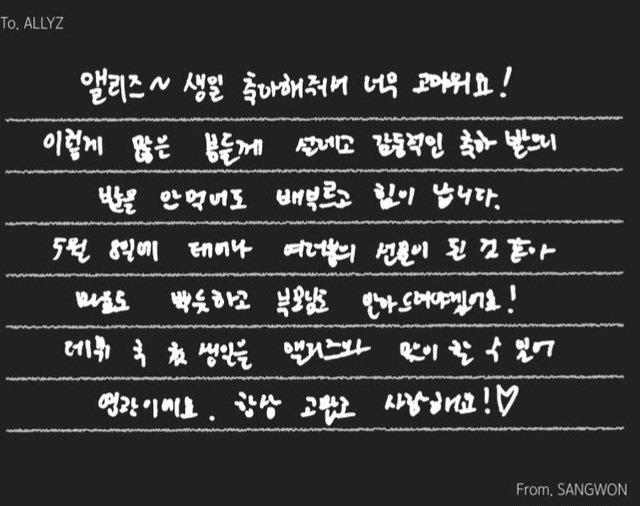 To. ALLYZ
앨리즈~ 생일 축하해줘서 너무 고마워요!
이렇게 많은 분들께 설레고 감동적인 축하 받으니
밥을 안 먹어도 배부르고 힘이 납니다.
5월 8일에 태어나 여러분의 선물이 된 것 같아
마음도 뿌듯하고 부모님도 안아드려야겠어요!
데뷔 후 첫 생일을 앨리즈와 같이 할 수 있어
영광이에요. 항상 고맙고 사랑해요!♡
From. SANGWON